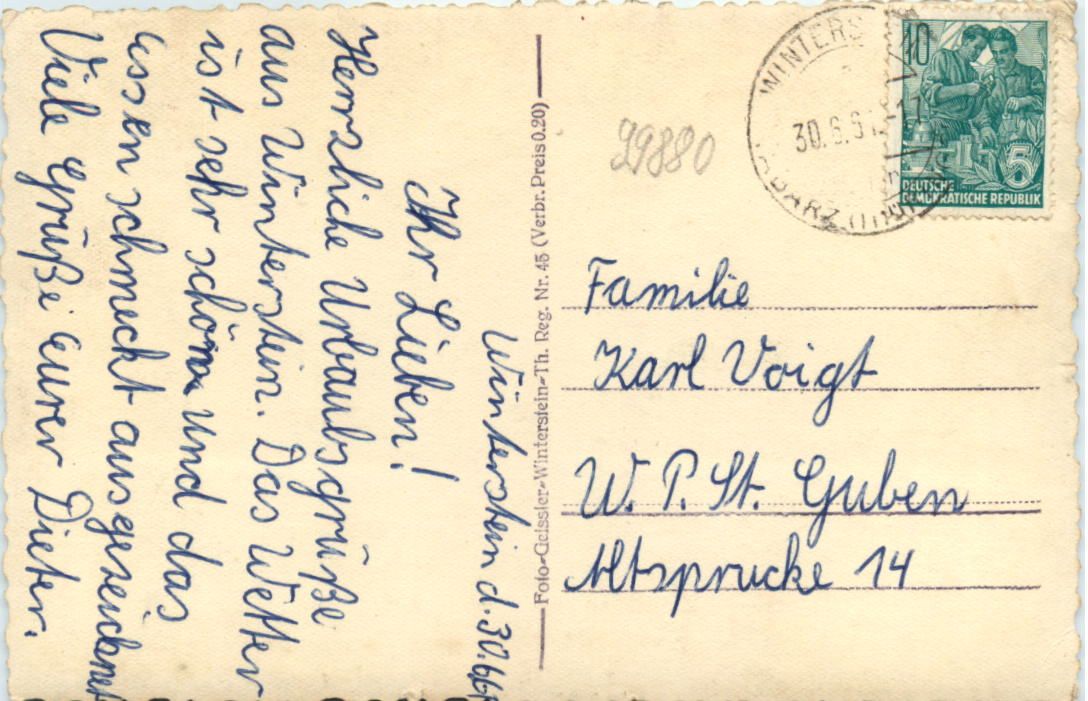 Winterstein d. 30.6.61
Ihr Lieben!
Herzliche Urbaubsgrüße
aus Winterstein. Das Wetter
ist sehr schön und das
Essen schmeckt ausgezeichnet
Viele Grüße Eurer Dieter.
Foto-Geissler-Winterstein-Th. Reg. Nr. 45 (Verbr. Preis 0.20)
29880
WINTERS
30.6.61
TABARZ (THÜR
10
5
DEUTSCHE
DEMOKRATISCHE REPUBLIK
Familie
Karl Voigt
W. P. St. Guben
Altsprucke 14